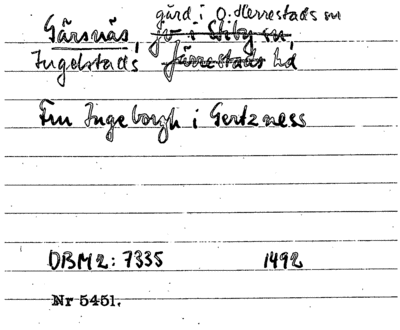 gård i Ö. Herrestads sn
Gärsnäs, jv i Stiby sn,
Ingelstads Järrestads hd
Fru Ingeborgh i Gertzness
DBM2: 7335 1492
Nr 5451.